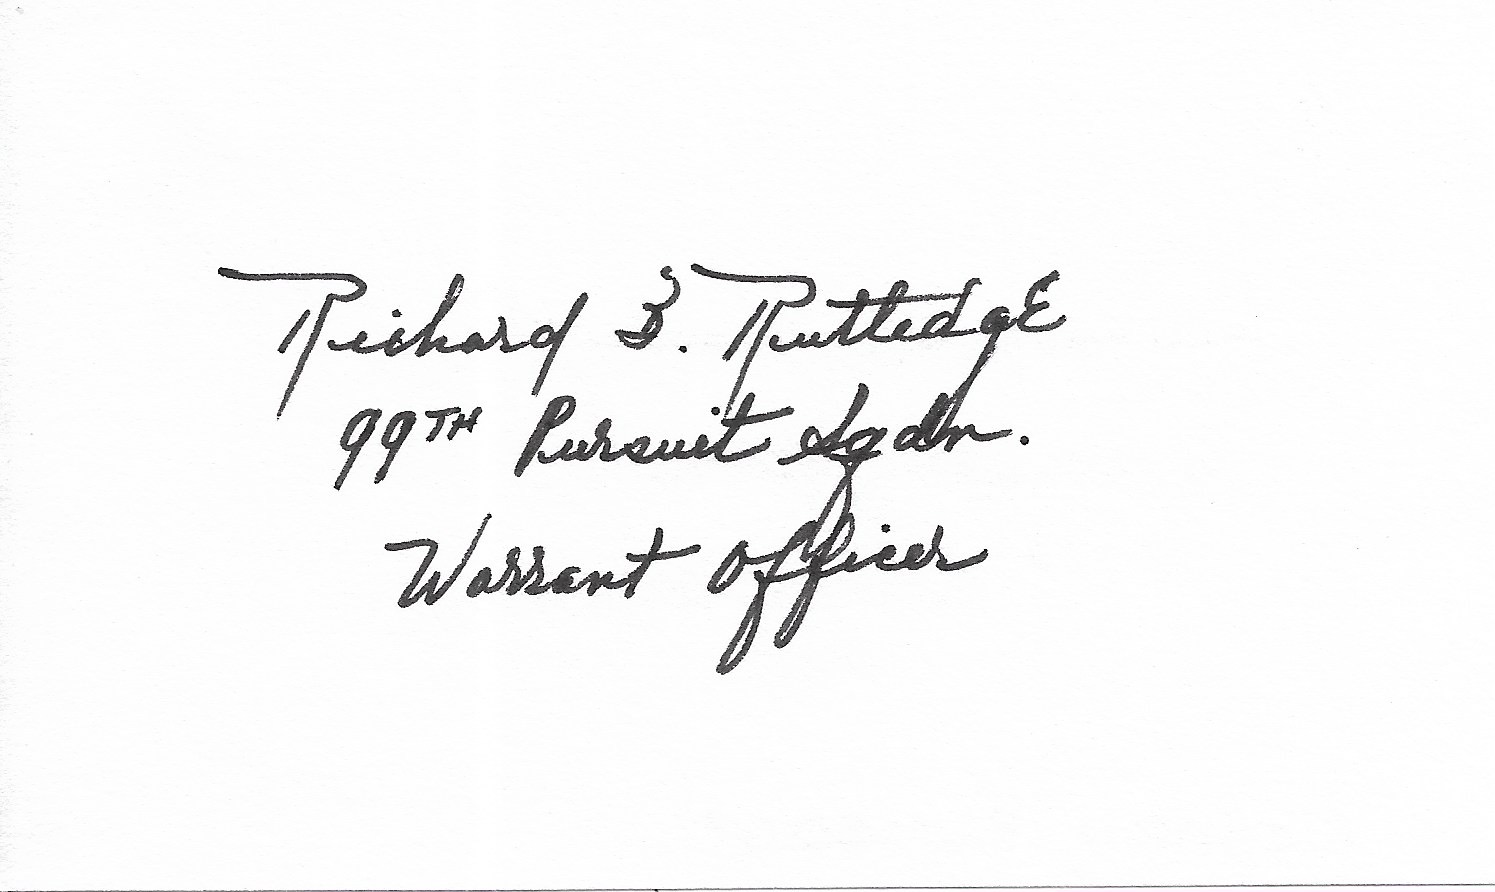 Richard B. Rutledge
99TH Pursuit Sqdn.
Warrant Officer